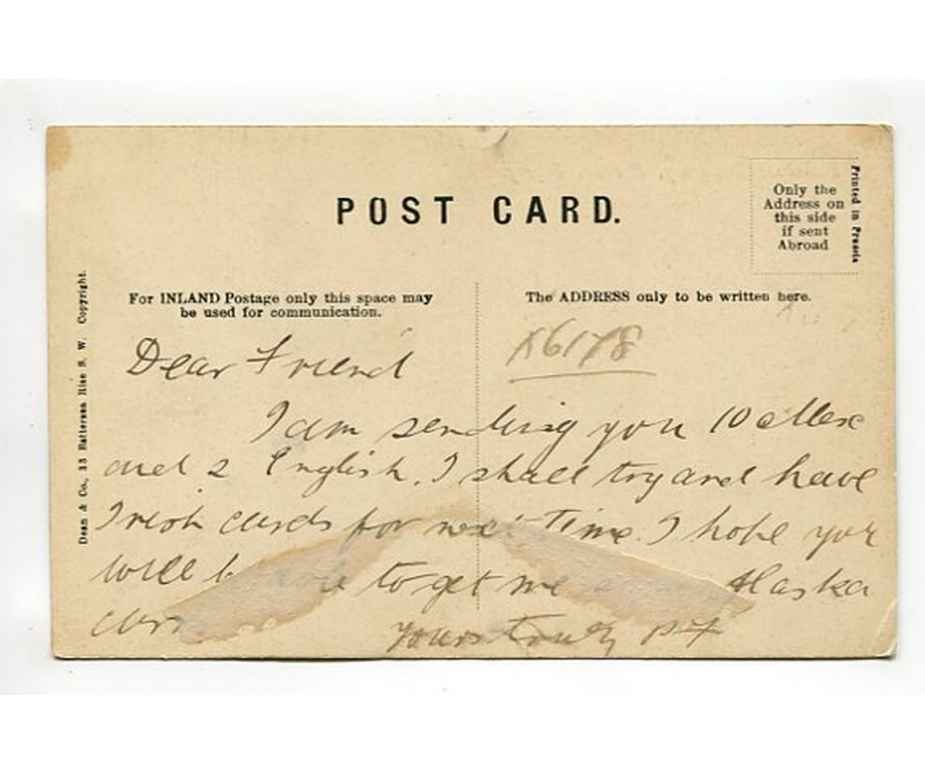 POST CARD.
Only the
Address on
this side
if sent
Abroad
Printed in Prussia
Dean & Co., 13 Batterses Rise S. W. Copyright.
For INLAND Postage only this space may
be used for communication.
The ADDRESS only to be written here.
X6178
Dear Friend
I am sending you 10 Mex
and 2 English. I shall try and have
Irish cards for next time. I hope you
will to get me Alaska
Yours truly